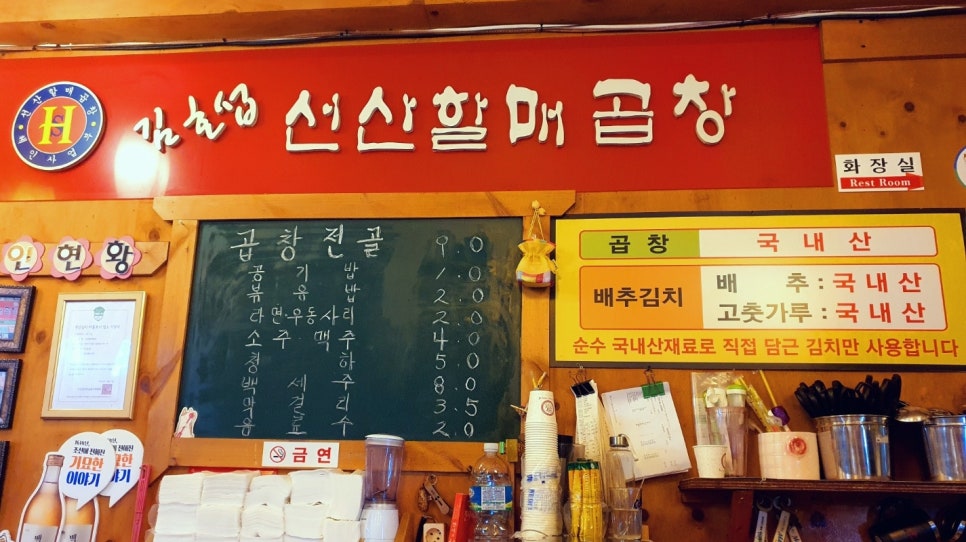 선산할매곱창
H
체인사업자
김호섭 선산할매곱창
화장실
Rest Room
인 현황
곱창전골 9.0
공기밥 1.0
볶음밥 2.0
라면·우동사리 2.0
소주·맥주 4.0
청하 5.0
백세주 8.0
음료수 2.0
곱창 국내산
배추김치
배추 : 국내산
고춧가루 : 국내산
순수 국내산재료로 직접 담근 김치만 사용합니다
금연
기묘한
이야기